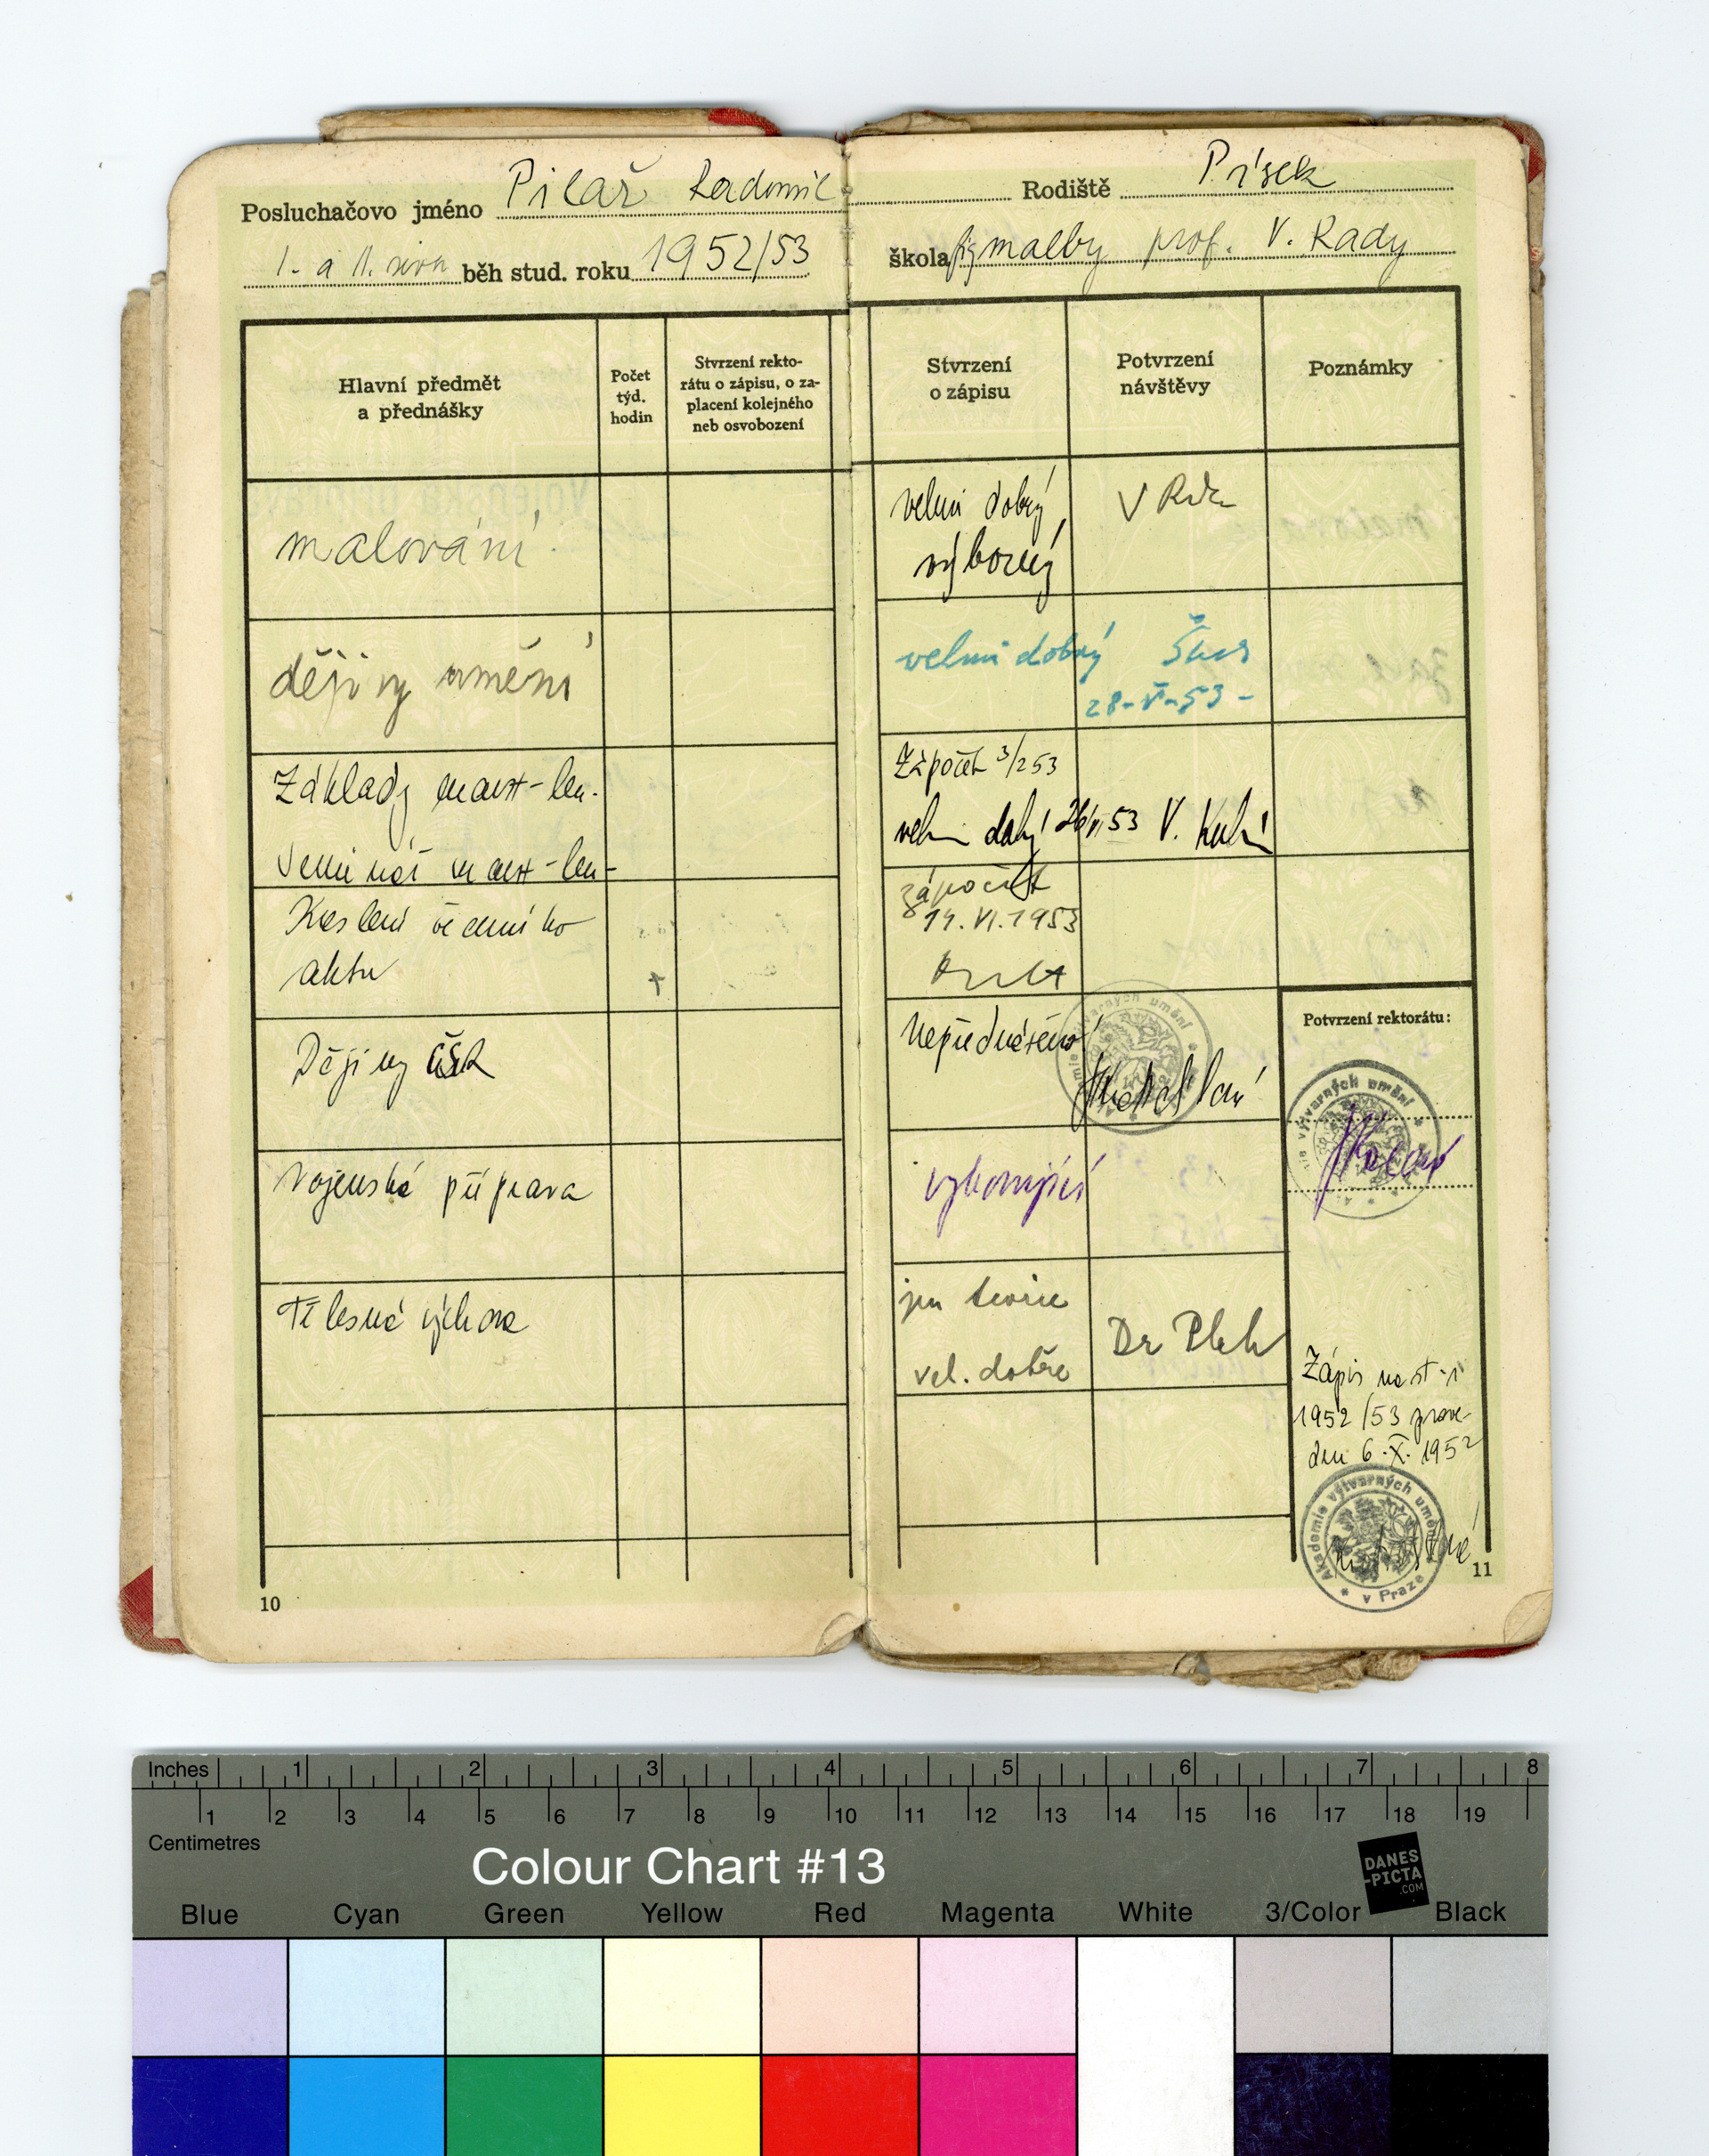 Posluchačovo jméno Pilař Radomil Rodiště Písek
I. a II. běh stud. roku 1952/53 škola fig malby prof. V. Rady
Hlavní předmět
a přednášky
Počet
týd.
hodin
Stvrzení rekto-
rátu o zápisu, o za-
placení kolejného
neb osvobození
Stvrzení
o zápisu
Potvrzení
návštěvy
Poznámky
malování
velmi dobrý
výborný
V Rada
dějiny umění
velmi dobrý
28-VI-53-
Základy marx-len.
Seminář marx-len-
Zápočet 3/2 53
velmi dobrý 26/VI 53 V.
Kreslení večerního
aktu
zápočet
14.VI.1953
Dějiny ČSR
Nepřednášeno
Potvrzení rektorátu:
Vojenská příprava
vyhovující
Tělesná výchova
jen teorie
vel. dobře
Dr
Zápis na st. r.
1952/53 prove-
den 6.X.1952
Akademie výtvarných umění
v Praze
10
11
Inches 1 2 3 4 5 6 7 8
1 2 3 4 5 6 7 8 9 10 11 12 13 14 15 16 17 18 19
Centimetres
Colour Chart #13
DANES
-PICTA
.COM
Blue Cyan Green Yellow Red Magenta White 3/Color Black